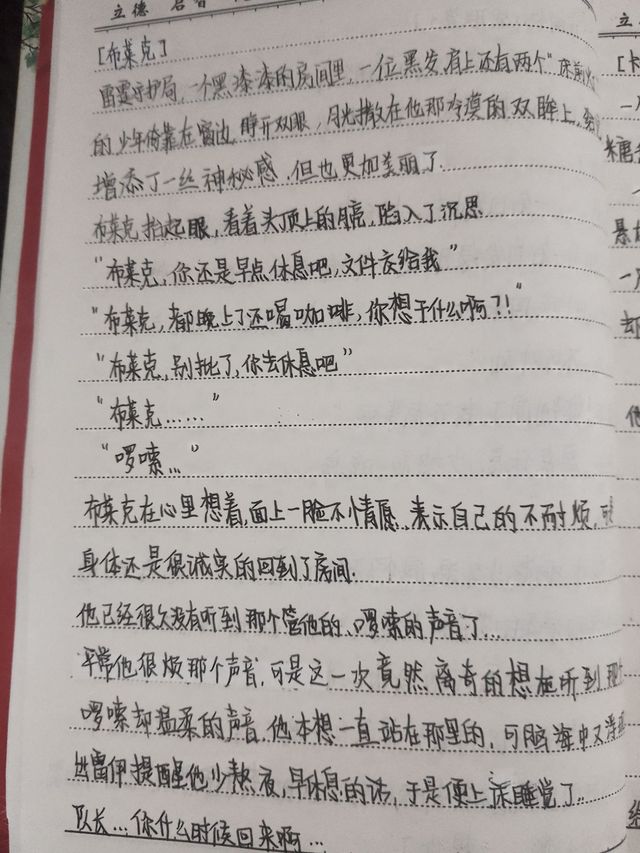 立德 启智
[布莱克]
雷霆守护局,一个黑漆漆的房间里,一位黑发肩上还有两个"床前火
的少年倚靠在窗边 睁开双眼,月光撒在他那冷漠的双眸上,给
增添了一丝神秘感,但也更加美丽了.
布莱克抬起眼,看着头顶上的月亮,陷入了沉思
"布莱克,你还是早点休息吧,文件交给我"
"布莱克,都晚上了还喝咖啡,你想干什么啊?!"
"布莱克,别批了,你去休息吧"
"布莱克......"
"啰嗦..."
布莱克在心里想着,面上一脸不情愿、表示自己的不耐烦,可
身体还是很诚实的回到了房间.
他已经很久没有听到那个管他的、啰嗦的声音了...
平常他很烦那个声音,可是这一次竟然离奇的想在听到那
啰嗦却温柔的声音.他本想一直站在那里的,可脑海中又浮
出雷伊提醒他少熬夜,早休息的话,于是便上床睡觉了.
队长...你什么时候回来啊...
立
[卡
一
糖
一
悬
一
却
他
给